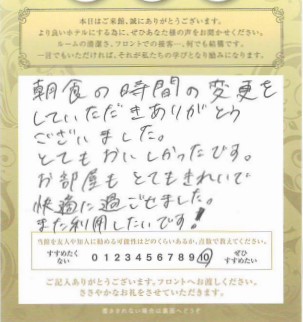 本日はご来館、誠にありがとうございます。
より良いホテルにする為に、ぜひあなた様の声をお聞かせください。
ルームの清潔さ、フロントでの接客…、何でも結構です。
一言でもいただければ、それが私たちの学びとなり励みになります。
朝食の時間の変更を
していただきありがとう
ございました。
とてもおいしかったです。
お部屋もとてもきれいで
快適に過ごせました。
また利用したいです!
当館を友人や知人に勧める可能性はどのくらいあるか、点数で教えてください。
すすめたくない 0 1 2 3 4 5 6 7 8 9 10 ぜひすすめたい
ご記入ありがとうございます。フロントへお渡しください。
ささやかなお礼をさせていただきます。